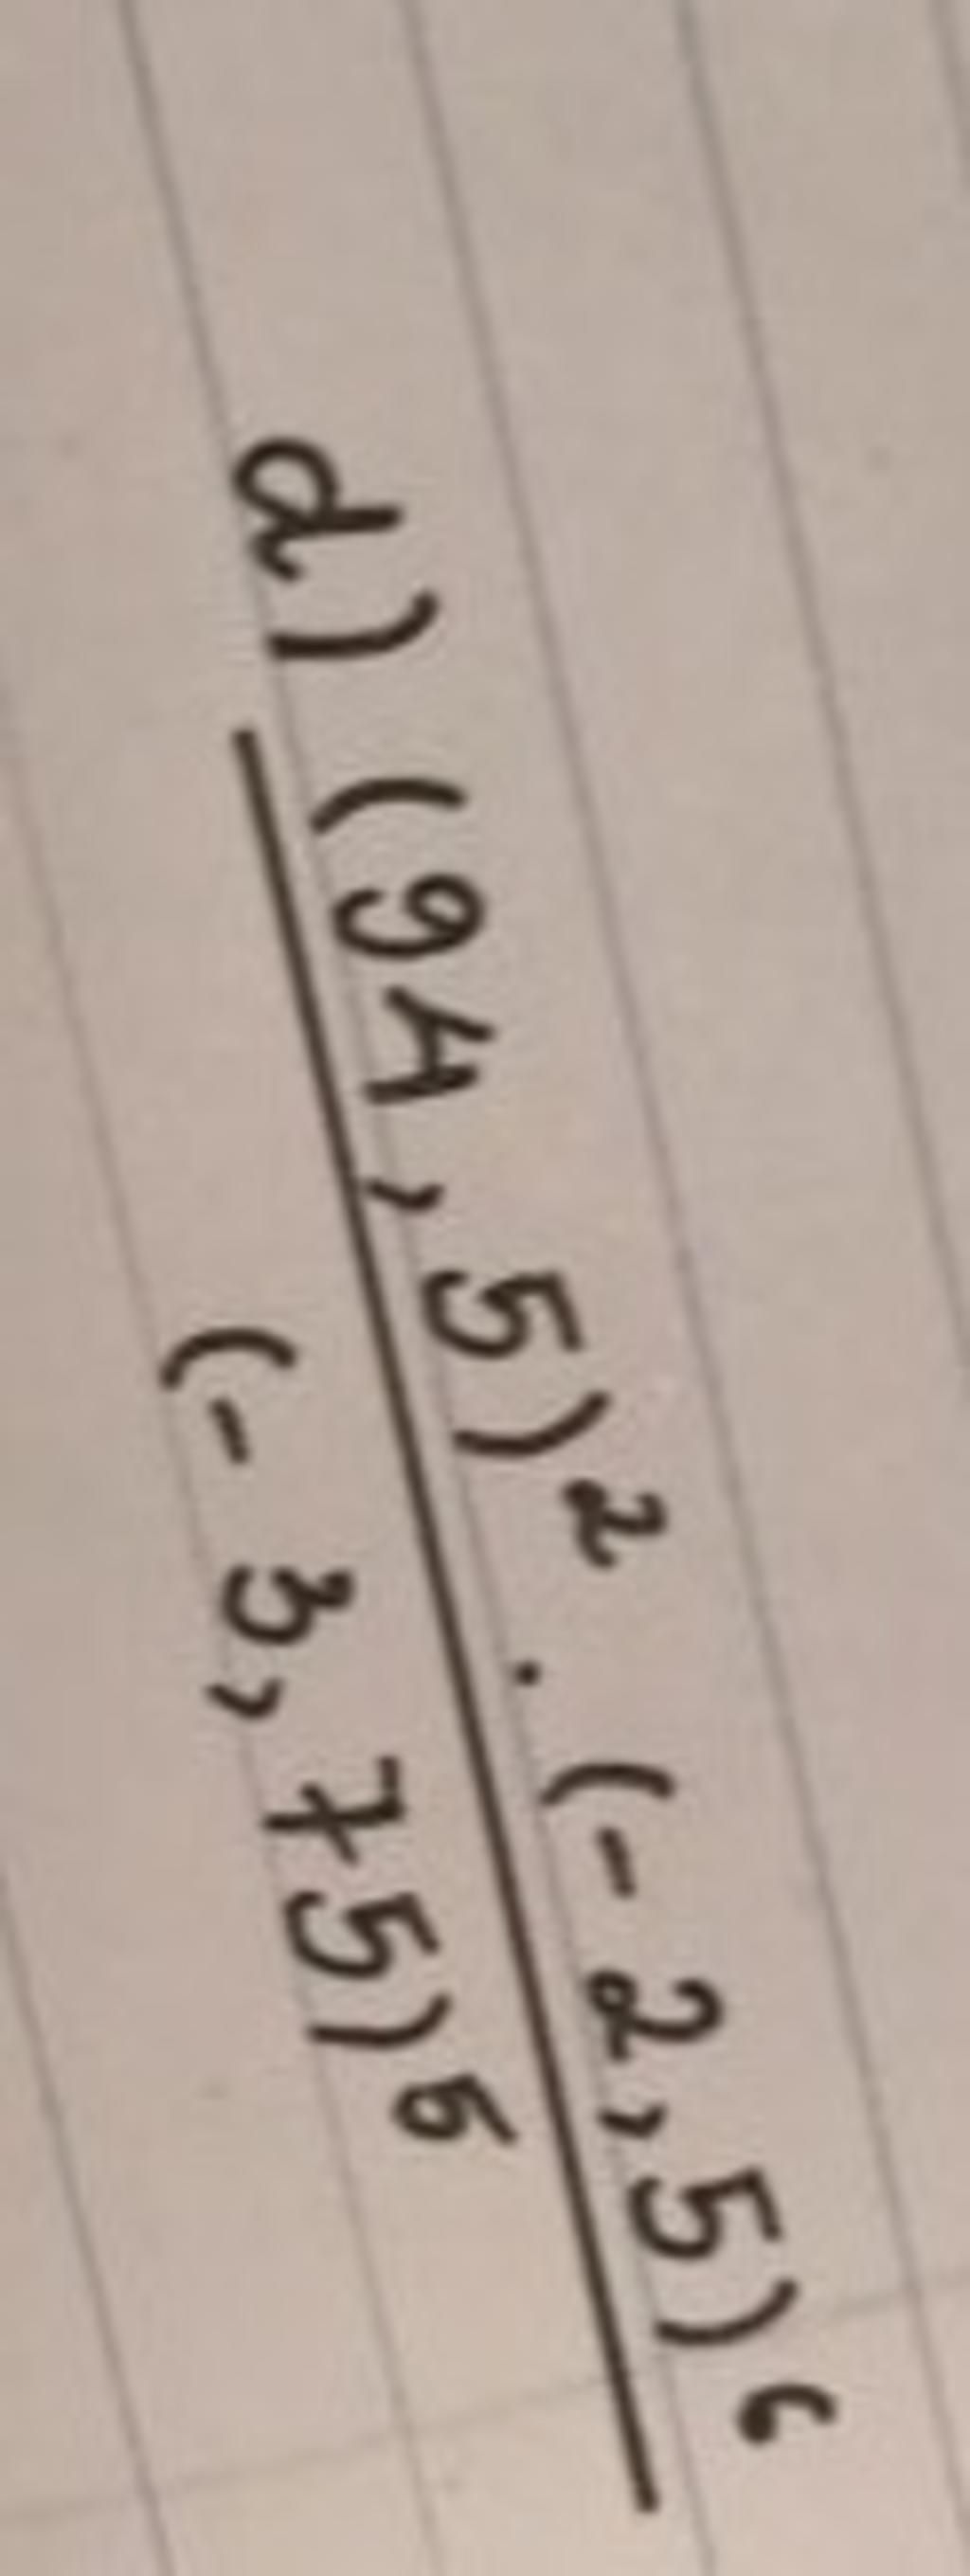 d) (94,5)² . (-2,5)⁶
(-3,75)⁵